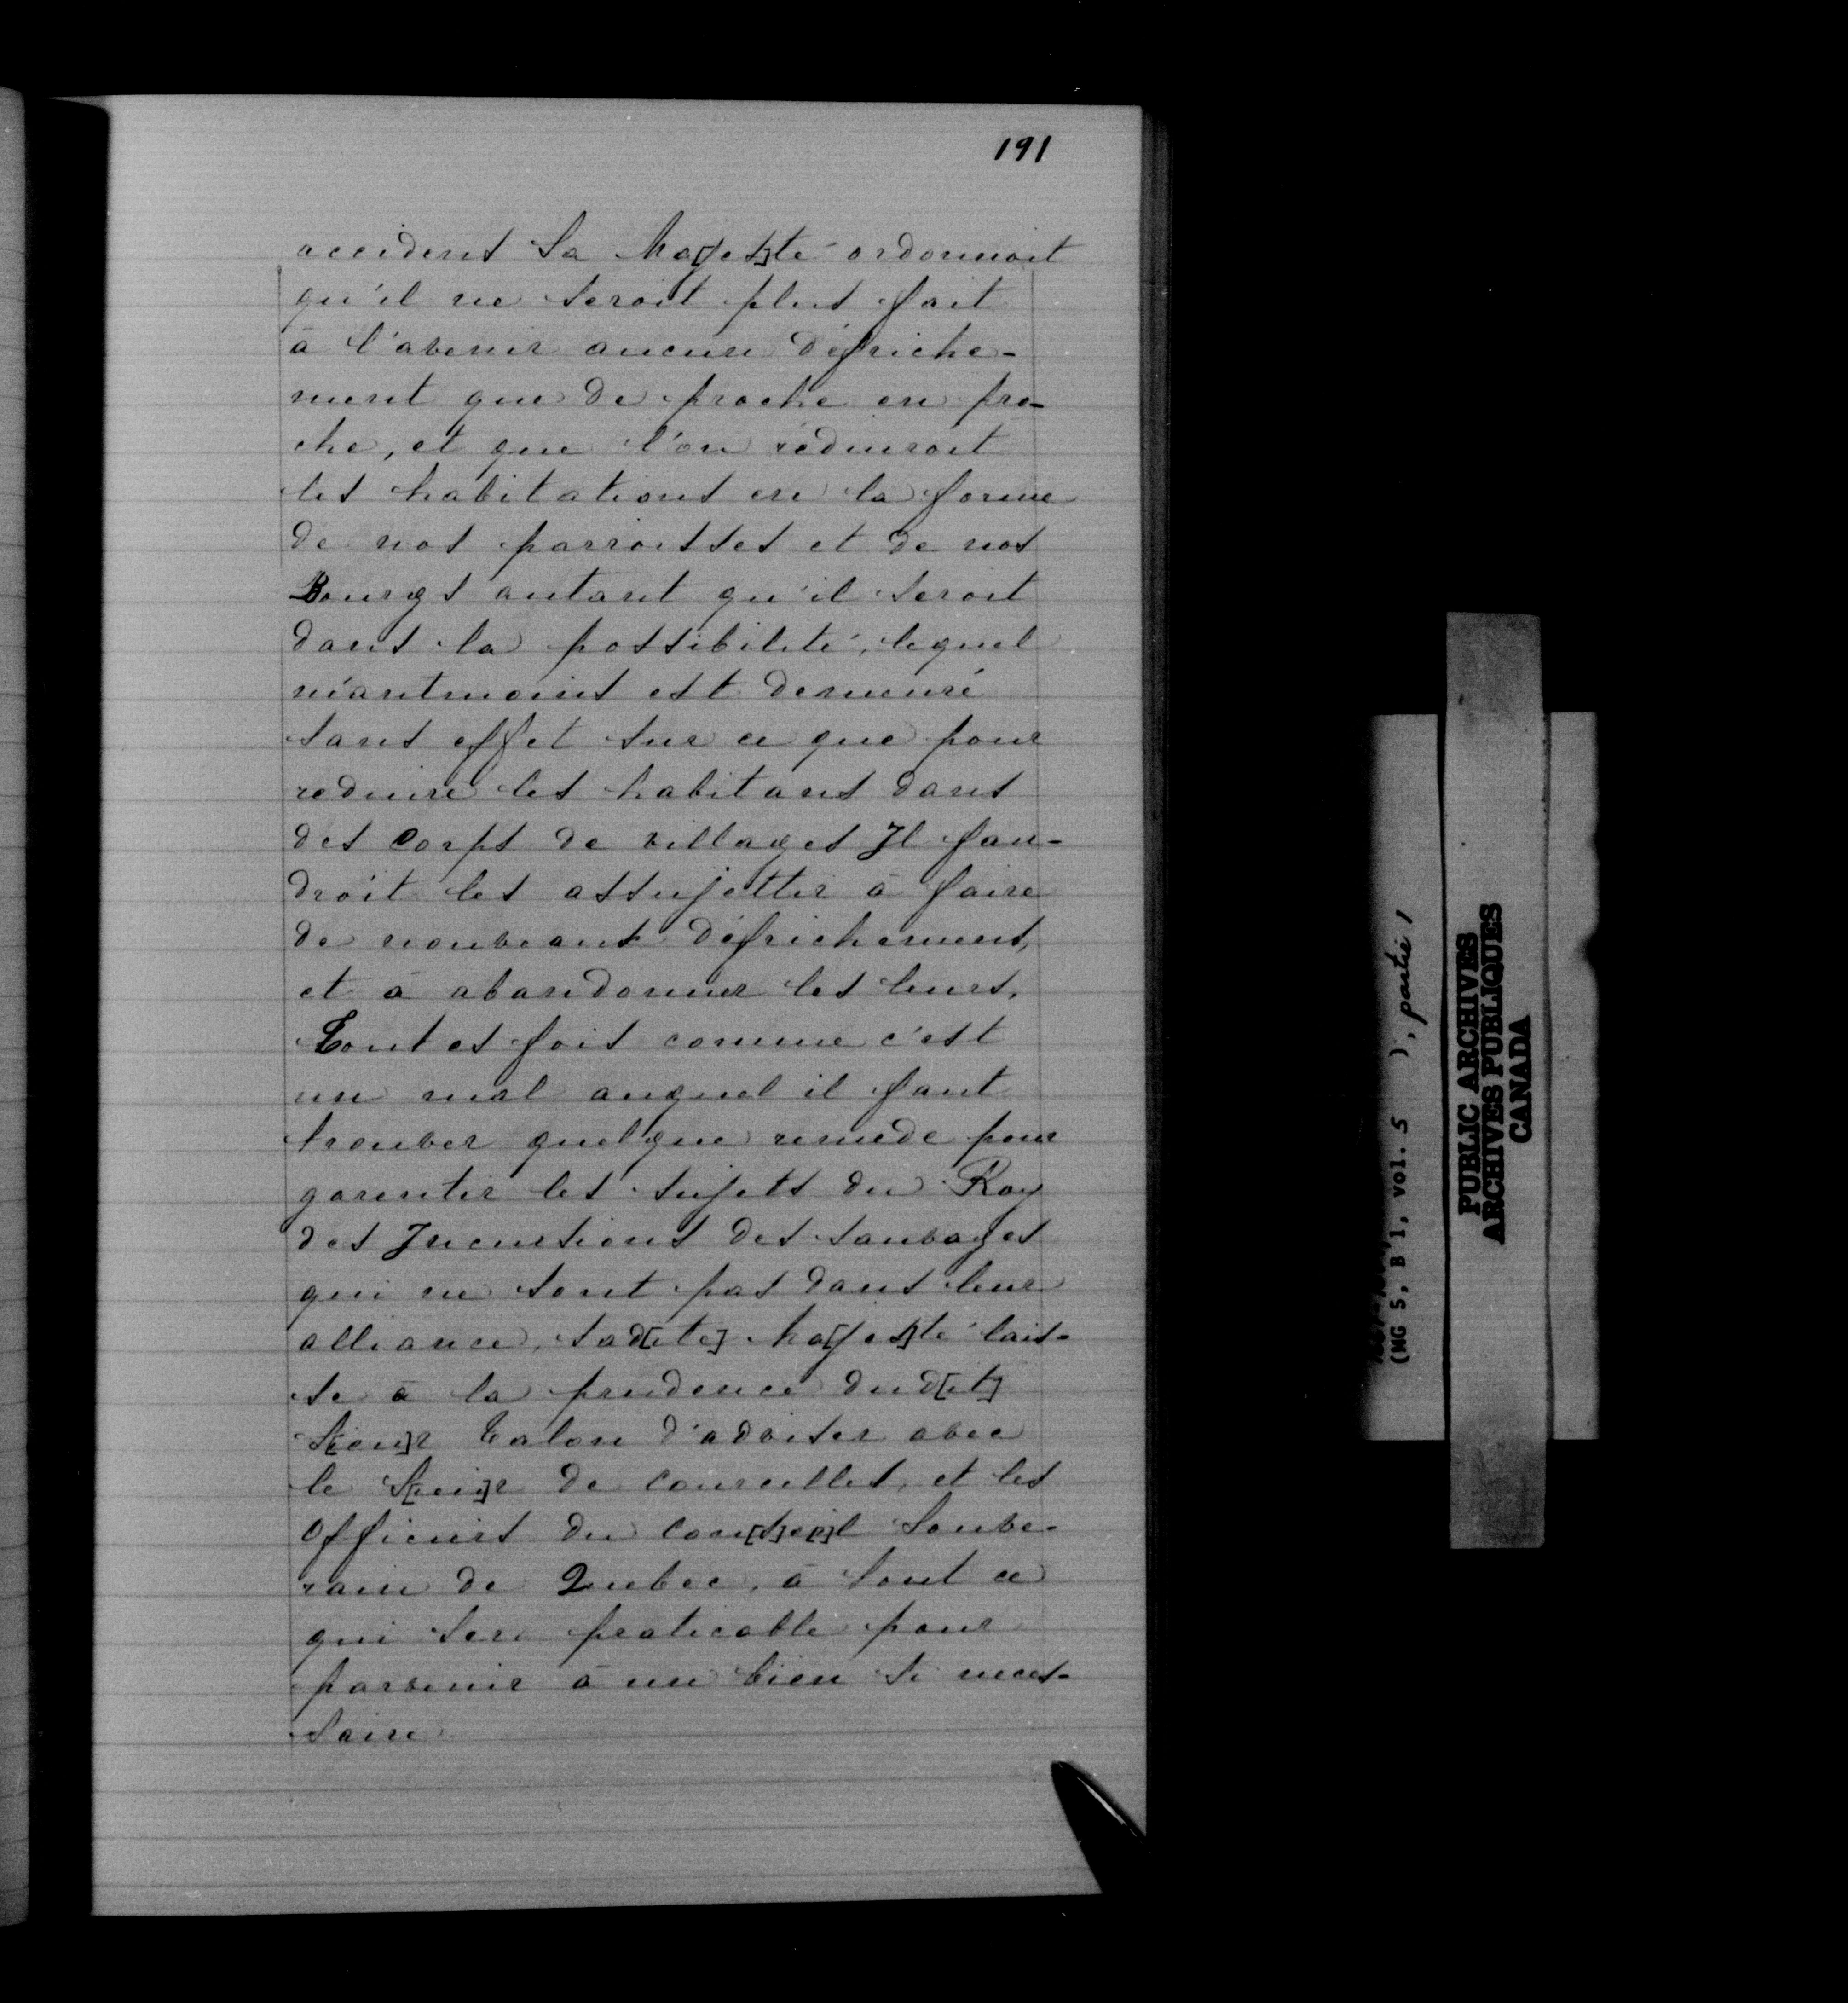 191
accident Sa Ma[jes]té ordonnoit
qu'il ne seroit plus fait
à l'avenir aucun défriche-
ment que de proche en pro-
che, et que l'on réduiroit
les habitations en la forme
de nos parroisses et de nos
Bourgs autant qu'il seroit
dans la possibilité, lequel
néantmoins est demeuré
sans effet sur ce que pour
reduire les habitans dans
des Corps de villages Il fau-
droit les assujetter à faire
de nouveaux défrichemens,
et à abandonner les leurs.
Toutes fois comme c'est
un mal auquel il faut
trouver quelque remede pour
garentir les sujets du Roy
des Incursions des sauvages
qui ne sont pas dans leur
alliance, sad[ite] Ma[jes]té lais-
se à la prudence dud[it]
S[ieu]r Talon d'adviser avec
le S[ieu]r de Courcelles, et les
Officiers du Con[s]e[i]l Souve-
rain de Quebec, à tout ce
qui sera praticable pour
parvenir à un bien si neces-
saire
(MG 5, B 1, vol. 5 ), partie 1
PUBLIC ARCHIVES
ARCHIVES PUBLIQUES
CANADA